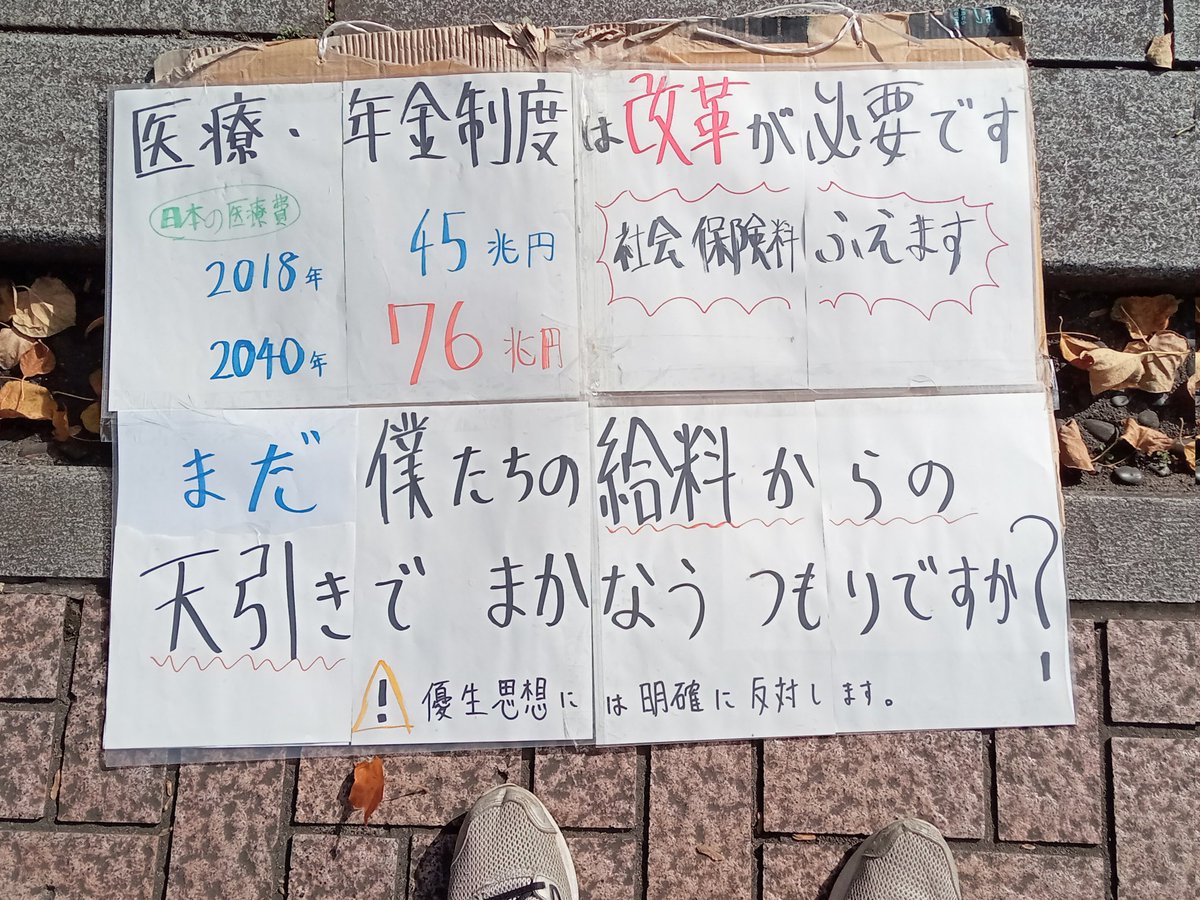 医療・年金制度は改革が必要です
日本の医療費
2018年 45兆円
2040年 76兆円
社会保険料ふえます
まだ僕たちの給料からの
天引きでまかなうつもりですか?
! 優生思想には明確に反対します。